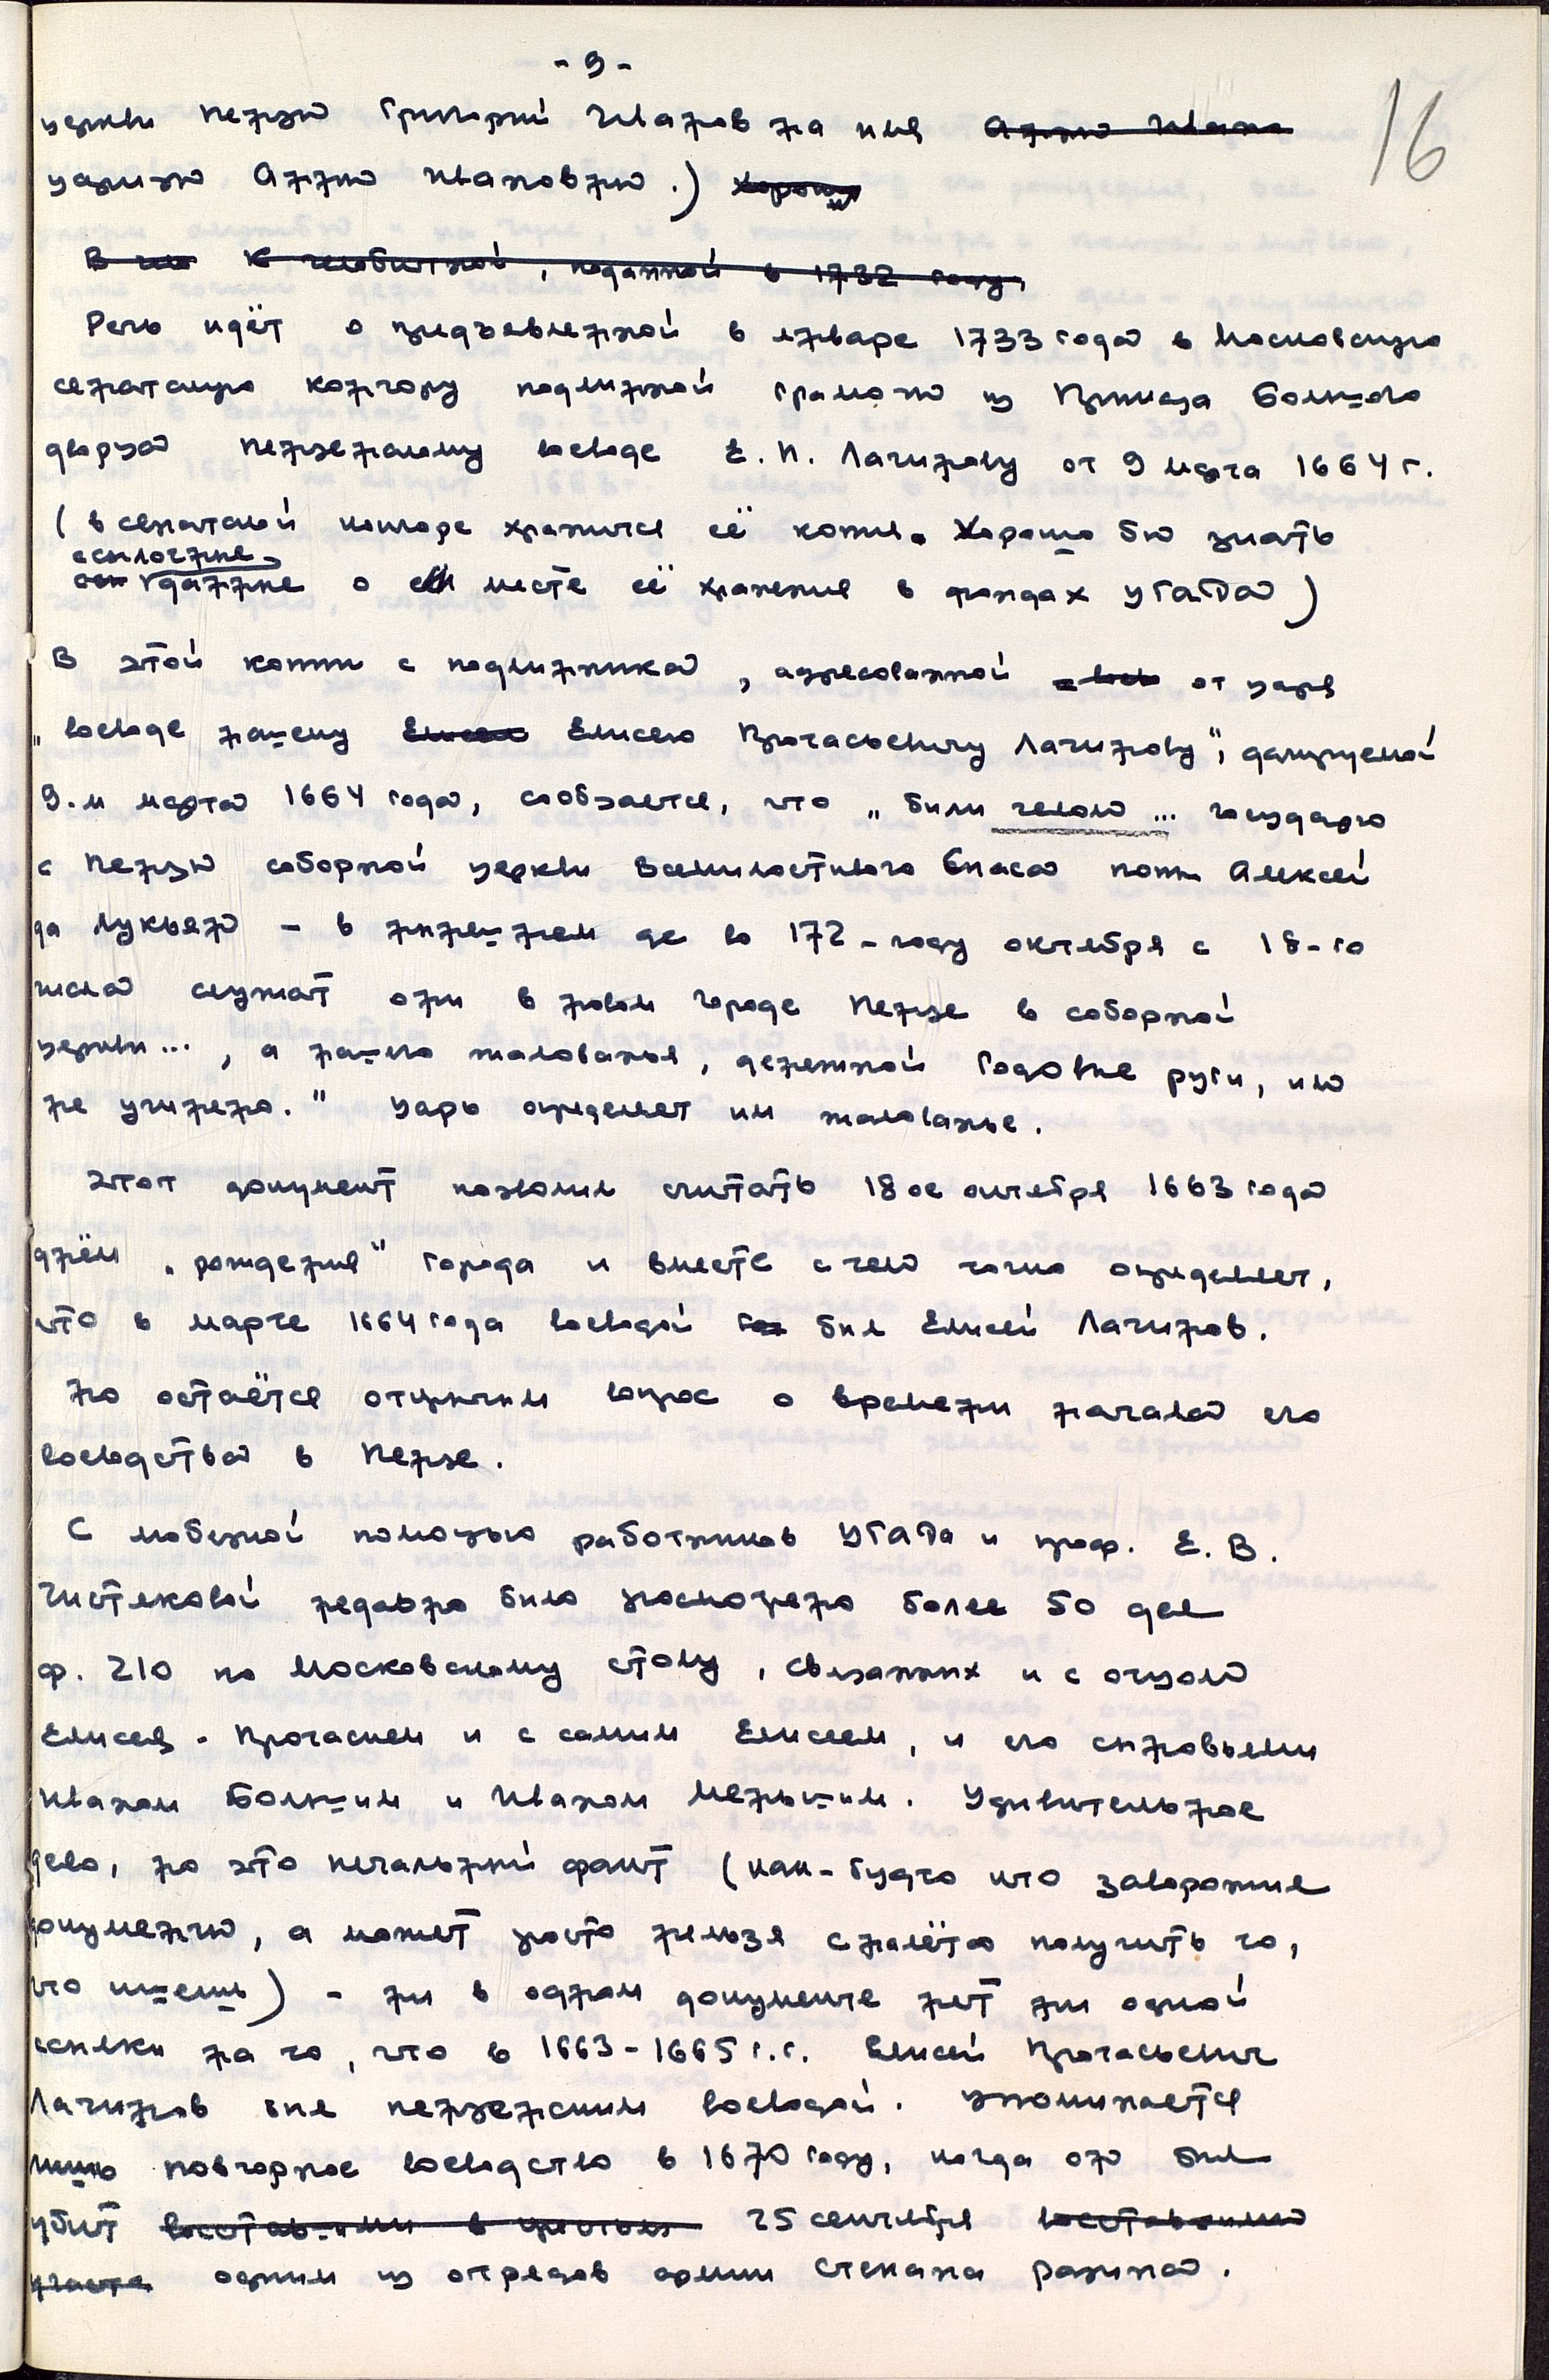 - 9 -
16
церкви Пензы Григорий Иванов на имя ~~Анны Ивано~~
царицы Анны Ивановны.) ~~Хорош~~
~~В чело К челобитной, поданной в 1732 году,~~
Речь идёт о предъявленной в январе 1733 года в Московскую
сенатскую контору подлинной грамоты из Приказа Большого
дворца пензенскому воеводе Е. П. Лачинову от 9 марта 1664 г.
(в сенатской конторе хранится её копия. Хорошо бы знать
ссылочные
данные о месте её хранения в фондах ЦГАДА)
В этой копии с подлинника, адресованной от царя
„воеводе нашему ~~Елисею~~ Елисею Протасьевичу Лачинову", датируемой
9-м марта 1664 года, сообщается, что „били челом ... государю
с Пензы соборной церкви Всемилостивого Спаса попы Алексей
да Лукьян - в нынешнем де во 172-году октября с 18-го
числа служат они в новом городе Пензе в соборной
церкви..., а нашего жалованья, денежной годовые руги, им
не учинено." Царь определяет им жалованье.
Этот документ позволил считать 18ое октября 1663 года
днём „рождения" города и вместе с тем точно определяет,
что в марте 1664 года воеводой был Елисей Лачинов.
Но остаётся открытым вопрос о времени начала его
воеводства в Пензе.
С любезной помощью работников ЦГАДА и проф. Е. В.
Чистяковой недавно было просмотрено более 50 дел
ф. 210 по Московскому столу, связанных и с отцом
Елисея - Протасием и с самим Елисеем, и его сыновьями
Иваном Большим и Иваном Меньшим. Удивительное
дело, но это печальный факт (как-будто кто заворожил
документы, а может просто нельзя с налёта получить то,
что ищешь) - ни в одном документе нет ни одной
ссылки на то, что в 1663-1665 г.г. Елисей Протасьевич
Лачинов был пензенским воеводой. Упоминается
лишь повторное воеводство в 1670 году, когда он был
убит ~~восставшими в~~ 25 сентября ~~восставшими~~
одним из отрядов армии Степана Разина.